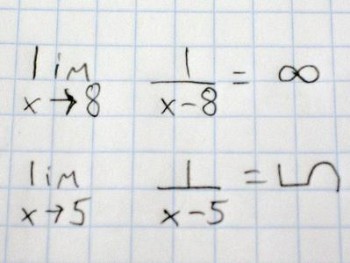 lim x→8 1/x-8 = ∞
lim x→5 1/x-5 = 5